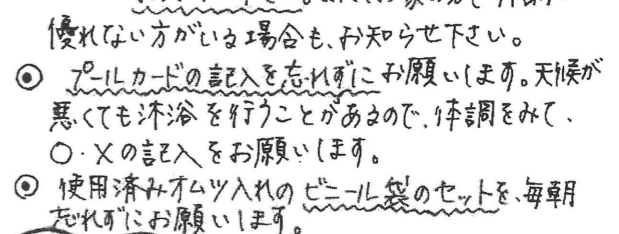 優れない方がいる場合も、お知らせ下さい。
◉ プールカードの記入を忘れずにお願いします。天候が
悪くても沐浴を行うことがあるので、体調をみて、
○・×の記入をお願いします。
◉ 使用済みオムツ入れのビニール袋のセットを、毎朝
忘れずにお願いします。